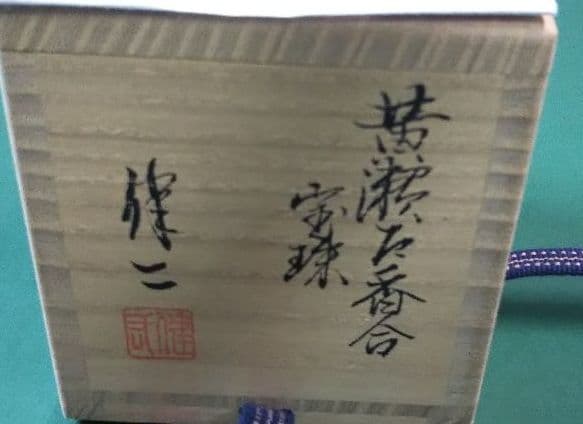 黄瀬戸香合
宝珠
二